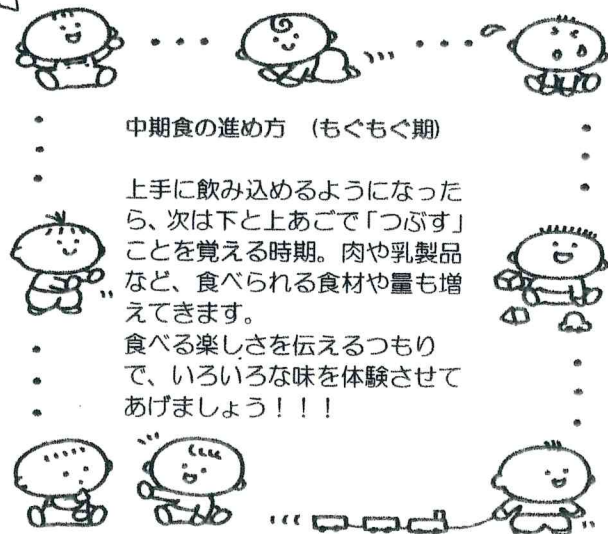 中期食の進め方　(もぐもぐ期)
上手に飲み込めるようになった
ら、次は下と上あごで「つぶす」
ことを覚える時期。肉や乳製品
など、食べられる食材や量も増
えてきます。
食べる楽しさを伝えるつもり
で、いろいろな味を体験させて
あげましょう！！！